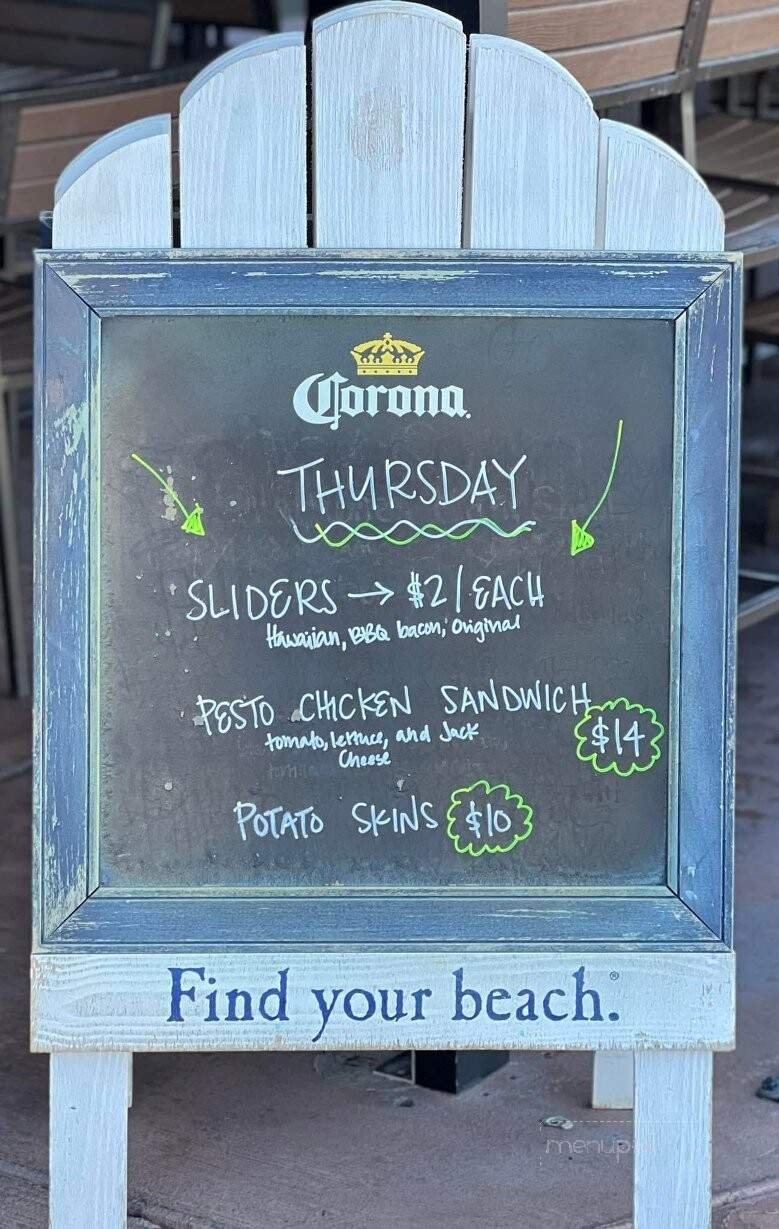 Corona.
THURSDAY
SLIDERS → $2/EACH
Hawaiian, BBQ bacon, Original
PESTO CHICKEN SANDWICH
$14
tomato, lettuce, and Jack
Cheese
POTATO SKINS $10
Find your beach.®